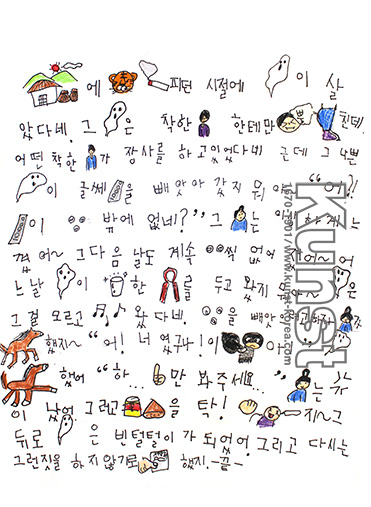 에 피던 시절에 이 살
았다네. 그 은 착한 한테만 친데.
어떤 착한 가 장사를 하고있었다네 근데 그 나쁜
이 글쎄 을 빼앗아 갔지 뭐
이 밖에 없네?" 그 는
졌어~ 그 다음 날도 계속 씩 없어
느날 이 한 를 두고 봤지
그걸 모르고 왔다네. 을 빼앗
했지~ "어! 너였구나! 이
했어 "하... 만 봐주세요... " 는
이 났어 그리고 을 탁! 지~그
뒤로 은 빈털털이가 되었어. 그리고 다시는
그런짓을 하지 않기로 했지. -끝-
Kunst
1970-2001/www.kunst-korea.com